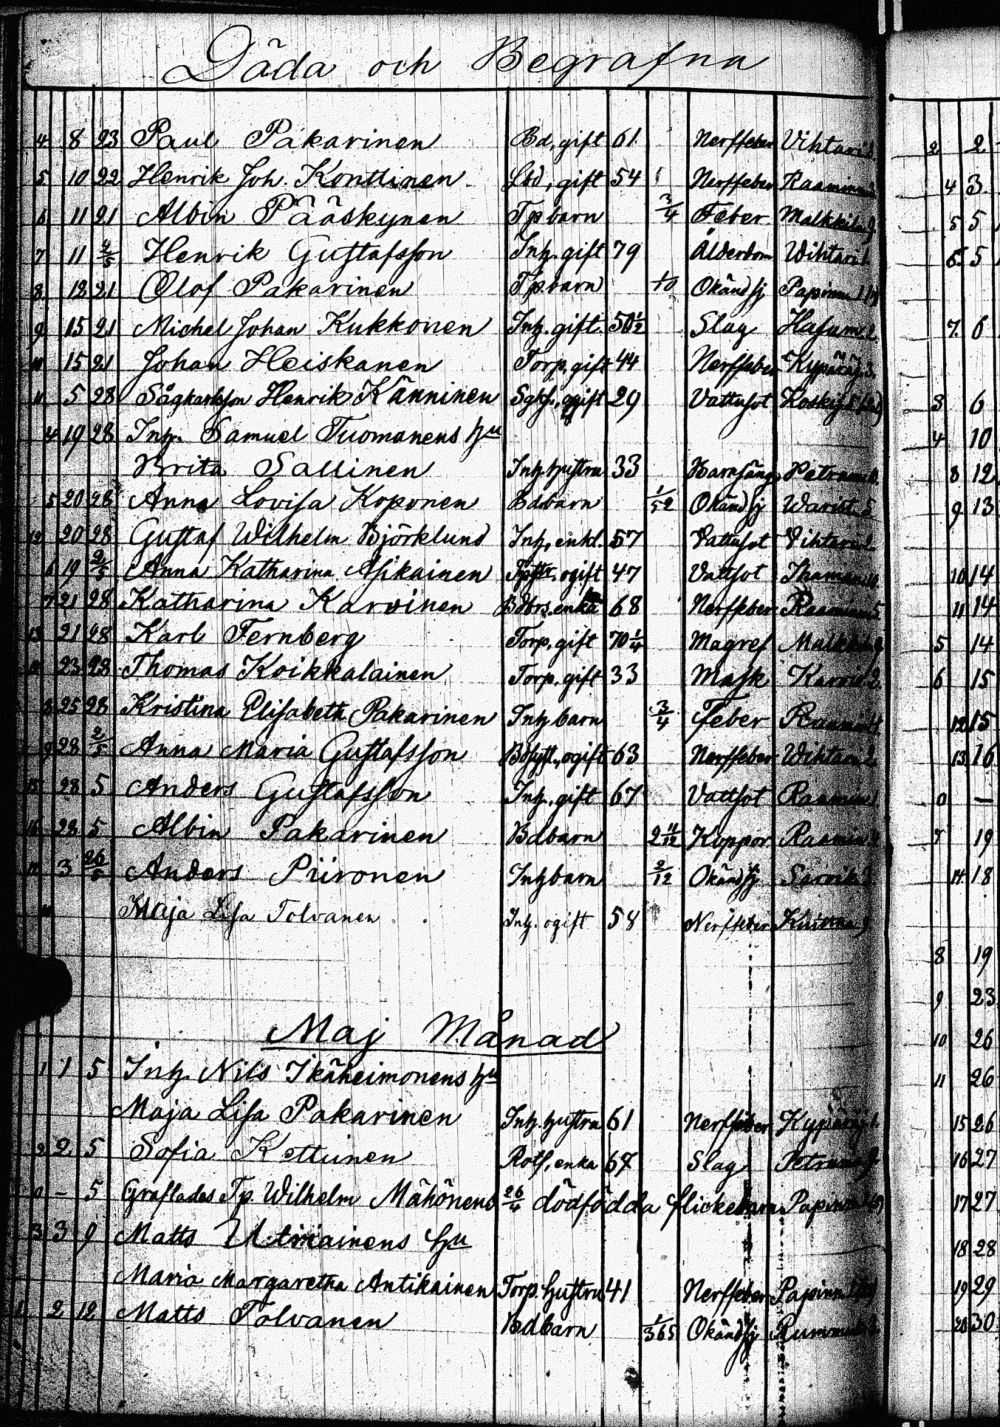 Döda och Begrafna
4 8 23 Paul Pakarinen Bd, gift 61 Nerffeber Vihtari
5 10 22 Henrik Joh. Konttinen Lbd, gift 54 Nerffeber Raamin
6 11 21 Albin Pääskynen Tpbarn 3/4 Feber Malkkila 9
7 11 4/5 Henrik Gustafsson Inh. gift 79 Ålderdom Wihtari
8 13 21 Olof Pakarinen Tpbarn 1/10 Okänd sj Papinn
9 15 21 Michel Johan Kukkonen Inh. gift 50 1/2 Slag
15 21 Johan Heiskanen Torp, gift 44 Nerffeber Kypäräj 3
5 28 Sågkarlsson Henrik Känninen 29 Vattusot
4 19 28 Inh. Samuel Tuomanens hu
Brita Sallinen Inh hustru 33 Barnsäng Petrum
5 20 28 Anna Lovisa Koponen Bdbarn 1/52 Okänd sj Warist 5
20 28 Gustaf Wilhelm Björklund Inh, enkl. 57 Vattsot Vihtari 2
6 19 2/5 Anna Katharina Asikainen ogift 47 Vattsot
7 21 28 Katharina Karvinen enka 68 Nerffeber Raamin 5
13 21 28 Karl Fernberg Torp, gift 70 1/4 Magref Malkkila 9
23 28 Thomas Koikkalainen Torp, gift 33 Mask Karvio 2
8 25 28 Kristina Elisabeth Pakarinen Inh barn 3/4 Feber Raamin 4
9 28 2/5 Anna Maria Gustafsson ogift 63 Nerffeber Wihtari 2
15 28 5 Anders Gustafsson Inh. gift 67 Vattsot Raamin
16 28 5 Albin Pakarinen Bdbarn 2 11/12 Koppor Raamin
17 3 26/5 Anders Piironen Inhbarn 2/12 Okänd sj Sarvik
Maja Lisa Tolvanen Inh. ogift 58 Nerffeber
Maj Månad
1 1 5 Inh. Nils Ikäheimonens hu
Maja Lisa Pakarinen Inh. hustru 61 Nerffeber Kypäräj
2 2 5 Sofia Kettunen Roth, enka 67 Slag Petrum
0 – 5 Graflades Tp. Wilhelm Mähönens 26/4 dödfödda flickebarn Papinn
3 3 9 Matts Utriainens hu
Maria Margaretha Antikainen Torp. hustru 41 Nerffeber Papinn
2 12 Matts Tolvanen Bdbarn 1/365 Okänd sj Rummuk
2 2
4 3
5 5
6 5
7 6
3 6
4 10
8 12
9 13
10 14
11 14
5 14
6 15
12 15
13 16
0 –
7 19
14 18
8 19
9 23
10 26
11 26
15 26
16 27
17 27
18 28
19 29
20 30